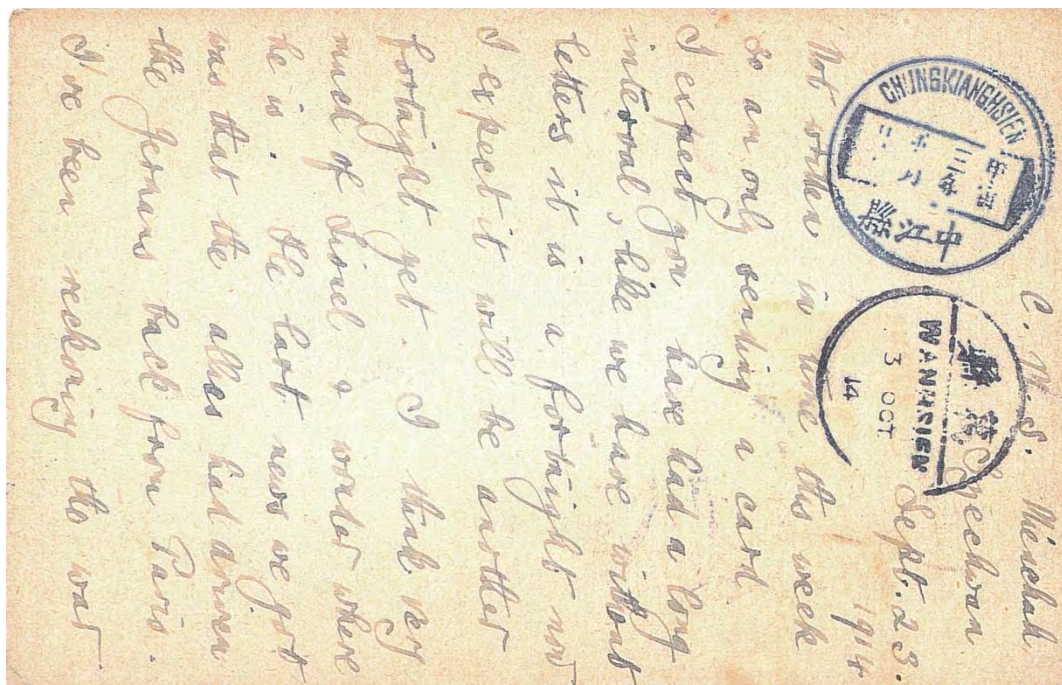 C. M. S. Mienchuh
Szechwan
Sept. 23.
1914
Not written in time this week
so am only sending a card
I expect you have had a long
interval, like we have without
letters it is a fortnight now
I expect it will be another
fortnight yet. I think very
much of Lionel & wonder where
he is. The last news we got
was that the allies had driven
the Germans back from Paris.
I've been reckoning this war
CHUNGKIANGHSIEN
三年
中江縣
萬縣
WANHSIEN
3 OCT
14